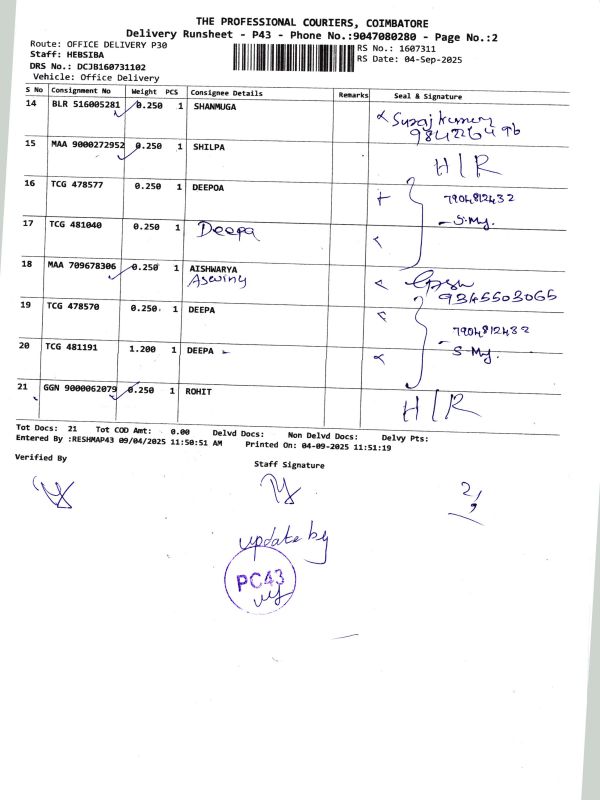 THE PROFESSIONAL COURIERS, COIMBATORE
Delivery Runsheet - P43 - Phone No.:9047080280 - Page No.:2
Route: OFFICE DELIVERY P30
RS No.: 1607311
Staff: HEBSIBA
RS Date: 04-Sep-2025
DRS No.: DCJB160731102
Vehicle: Office Delivery
S No Consignment No Weight PCS Consignee Details Remarks Seal & Signature
14 BLR 516005281 0.250 1 SHANMUGA
Surajkumar
15 MAA 9000272952 0.250 1 SHILPA H/R
16 TCG 478577 0.250 1 DEEPOA 7904812432
17 TCG 481040 0.250 1 Deepa
18 MAA 709678306 0.250 1 AISHWARYA
Aswiny 9345503065
19 TCG 478570 0.250. 1 DEEPA 7904812432
20 TCG 481191 1.200 1 DEEPA
21 GGN 9000062079 0.250 1 ROHIT H/R
Tot Docs: 21 Tot COD Amt: 0.00 Delvd Docs: Non Delvd Docs: Delvy Pts:
Entered By :RESHMAP43 09/04/2025 11:50:51 AM Printed On: 04-09-2025 11:51:19
Verified By
Staff Signature
update by
PC43